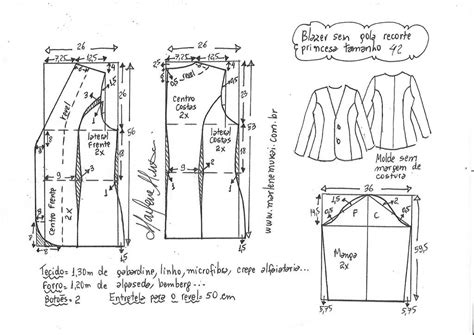 Blazer sem gola recorte
princesa tamanho 42
26
7,25
12,5
4,5
revel
3
2
1
18
56
lateral
Frente
2x
centro Frente
2x
8
26
7,5
12,5
2,5
4
Centro
Costas
2x
lateral
Costas
2x
23
53
18
Marlene Mukai
www.marlenemukai.com.br
Molde sem
margem de
costura
36
14,5
1,5
F
C
Manga
2x
59,5
3,75
Tecido= 1,30m de gabardine, linho, microfibra, crepe alfaiataria...
Forro= 1,20m de alpaseda, bemberg...
Botões= 2 Entretela para o revel= 50 cm